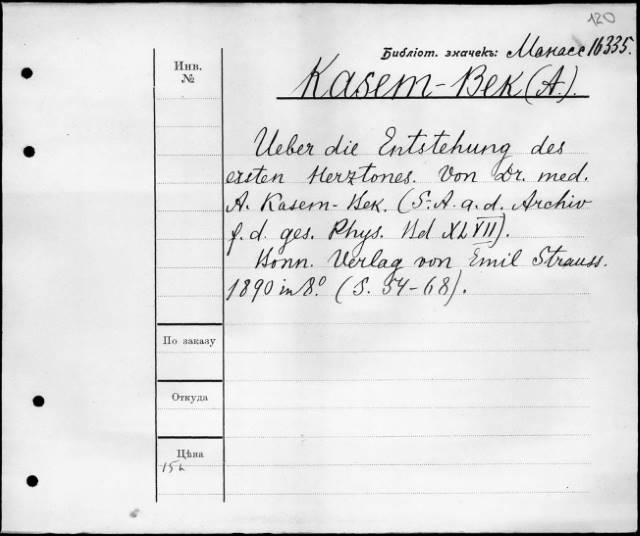 120
Библіот. значекъ: Манасс 16335.
Инв.
№
Kasem-Bek (A.).
Ueber die Entstehung des
ersten Herztones. Von Dr. med.
A. Kasem-Bek. (S. A. a. d. Archiv
f. d. ges. Phys. Bd XLVII).
Bonn. Verlag von Emil Strauss.
1890 in 8.° (S. 54-68).
По заказу
Откуда
Цѣна